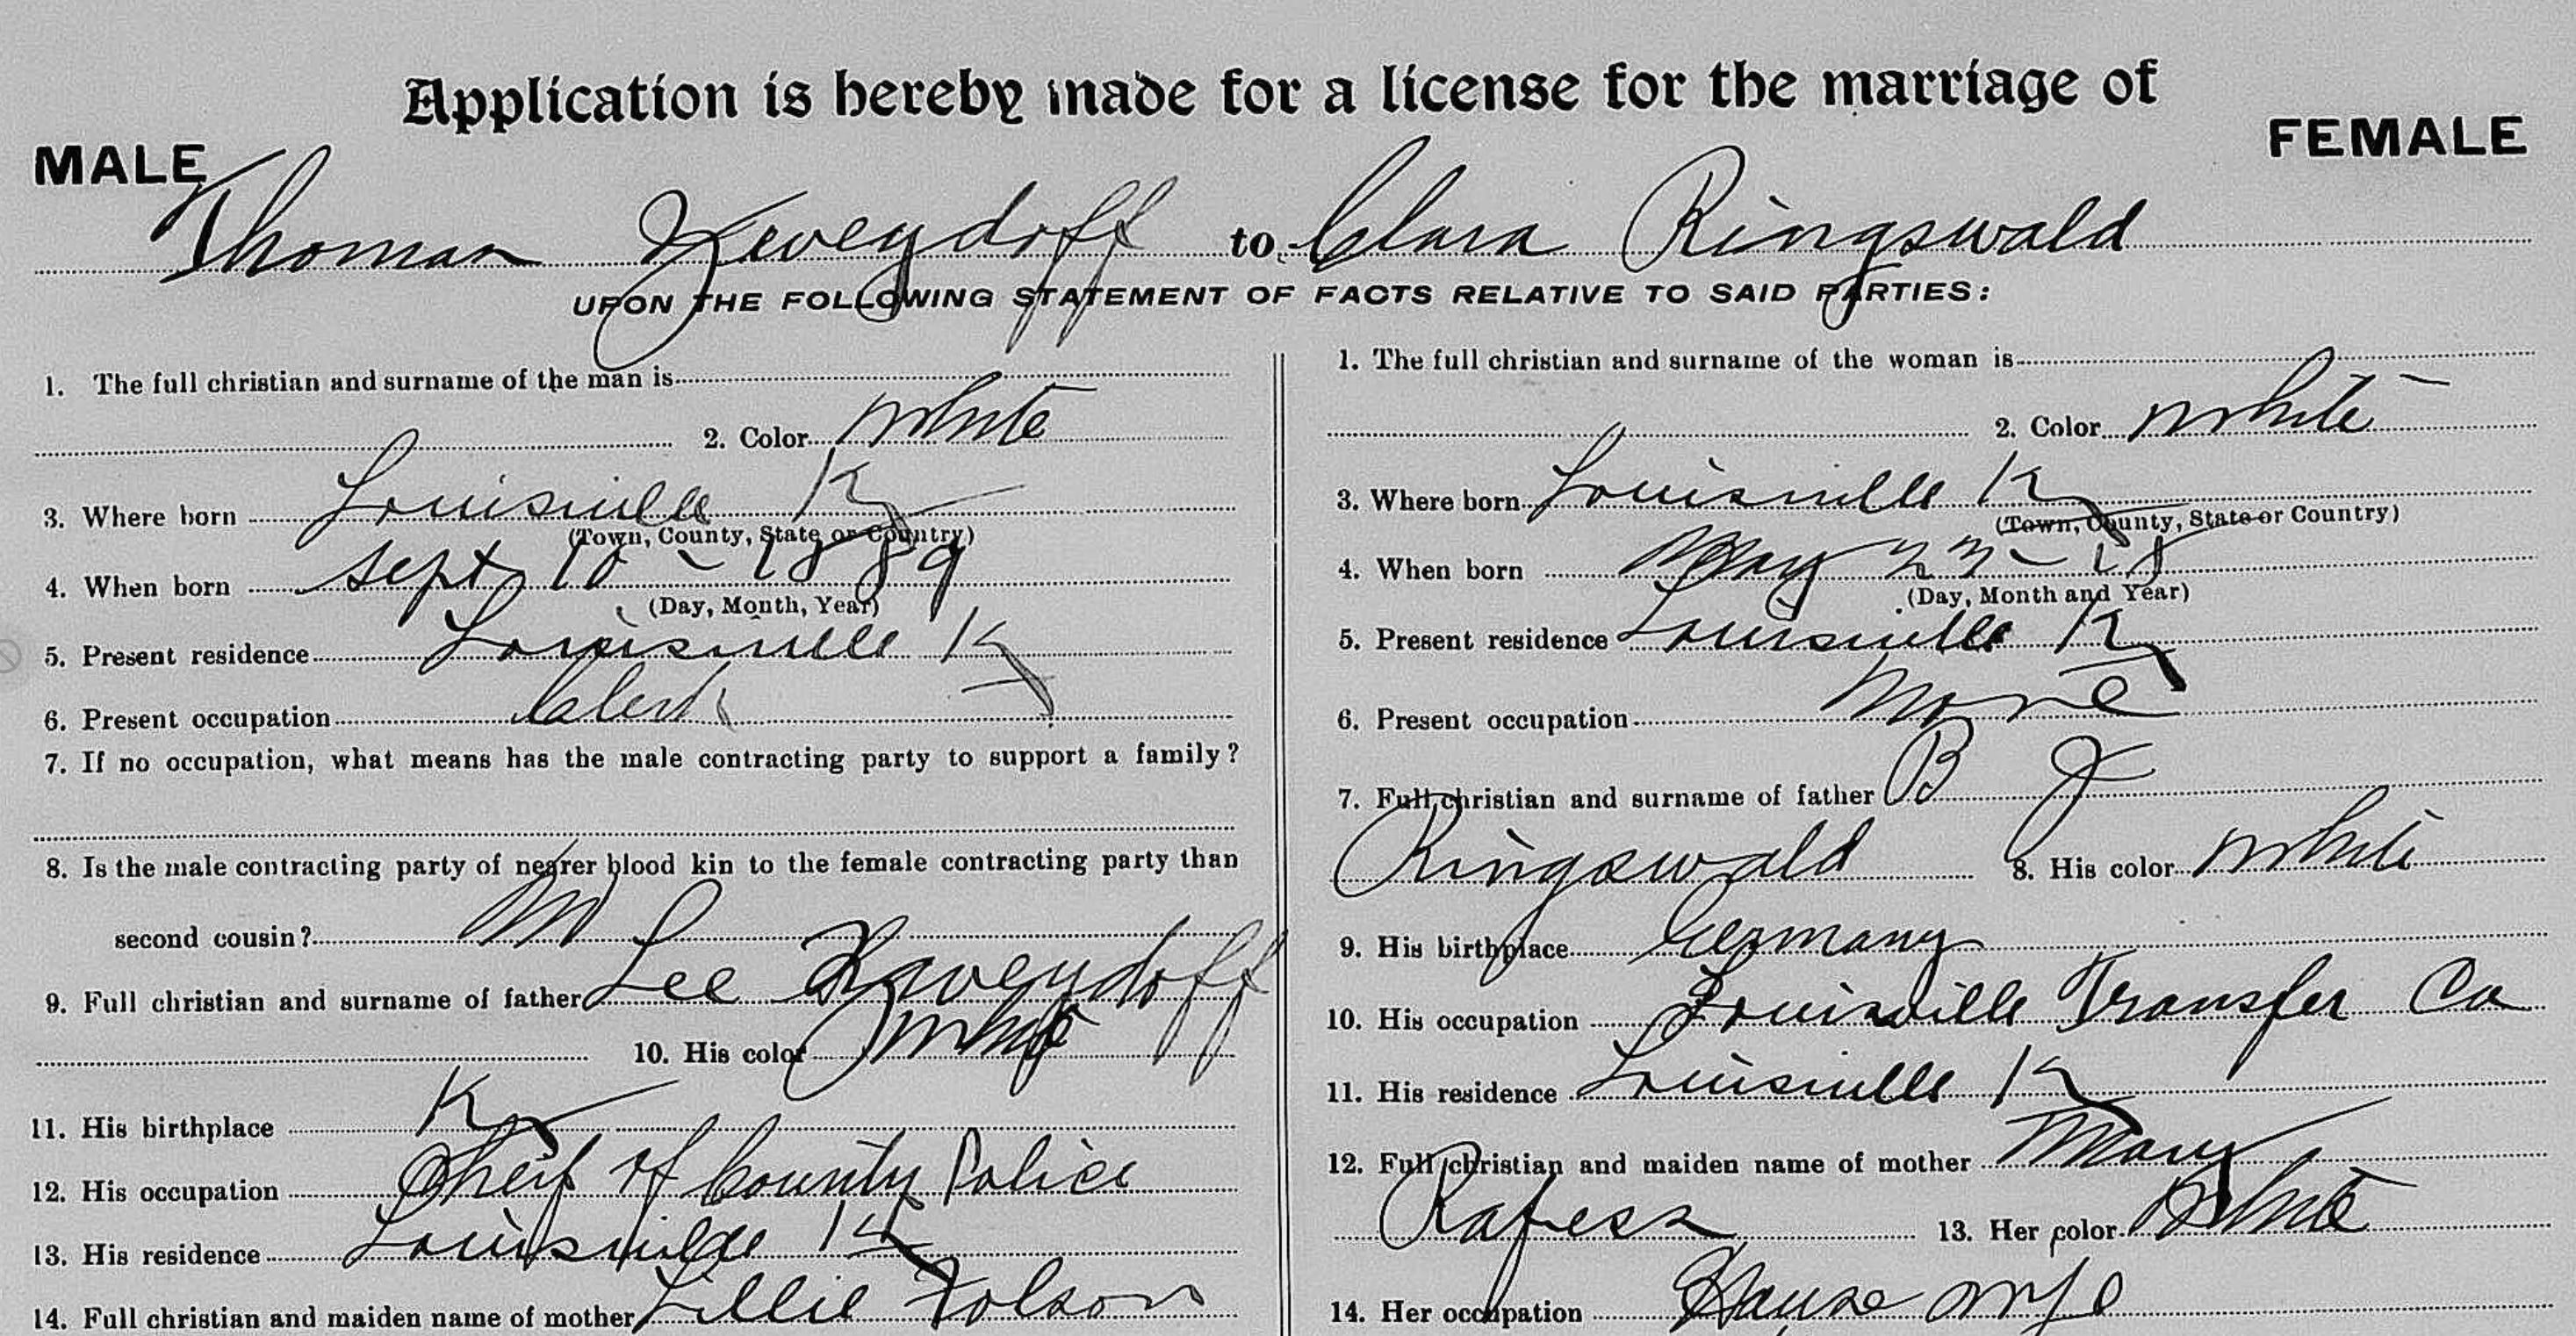 Application is hereby made for a license for the marriage of
MALE
FEMALE
Thomas to Clara Ringswald
UPON THE FOLLOWING STATEMENT OF FACTS RELATIVE TO SAID PARTIES:
1. The full christian and surname of the man is
2. Color White
3. Where born Louisville Ky
(Town, County, State or Country)
4. When born Sept 10 - 1889
(Day, Month, Year)
5. Present residence Louisville Ky
6. Present occupation Clerk
7. If no occupation, what means has the male contracting party to support a family?
8. Is the male contracting party of nearer blood kin to the female contracting party than
second cousin? No
9. Full christian and surname of father Lee
10. His color White
11. His birthplace Ky
12. His occupation Cheif of County Police
13. His residence Louisville Ky
14. Full christian and maiden name of mother Lillie Folson
1. The full christian and surname of the woman is
2. Color White
3. Where born Louisville Ky
(Town, County, State or Country)
4. When born May 23 - 18
(Day, Month and Year)
5. Present residence Louisville Ky
6. Present occupation None
7. Full christian and surname of father B J
Ringswald 8. His color White
9. His birthplace Germany
10. His occupation Louisville Transfer Co
11. His residence Louisville Ky
12. Full christian and maiden name of mother Mary
13. Her color White
14. Her occupation House wife